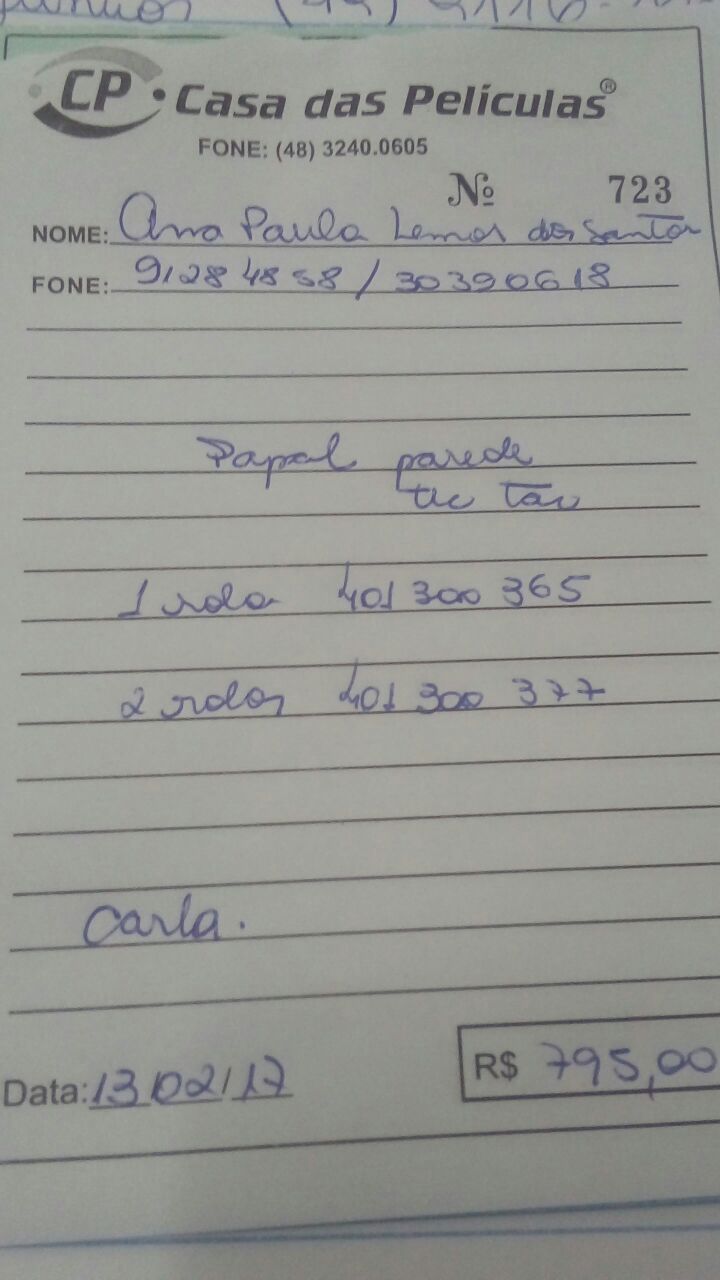 CP • Casa das Películas®
FONE: (48) 3240.0605
Nº 723
NOME: Ana Paula Lemos dos Santos
FONE: 91284858 / 30390618
Papel parede
tic tac
1 rolo 401 300 365
2 rolos 401 300 377
Carla.
Data: 13/02/17
R$ 795,00